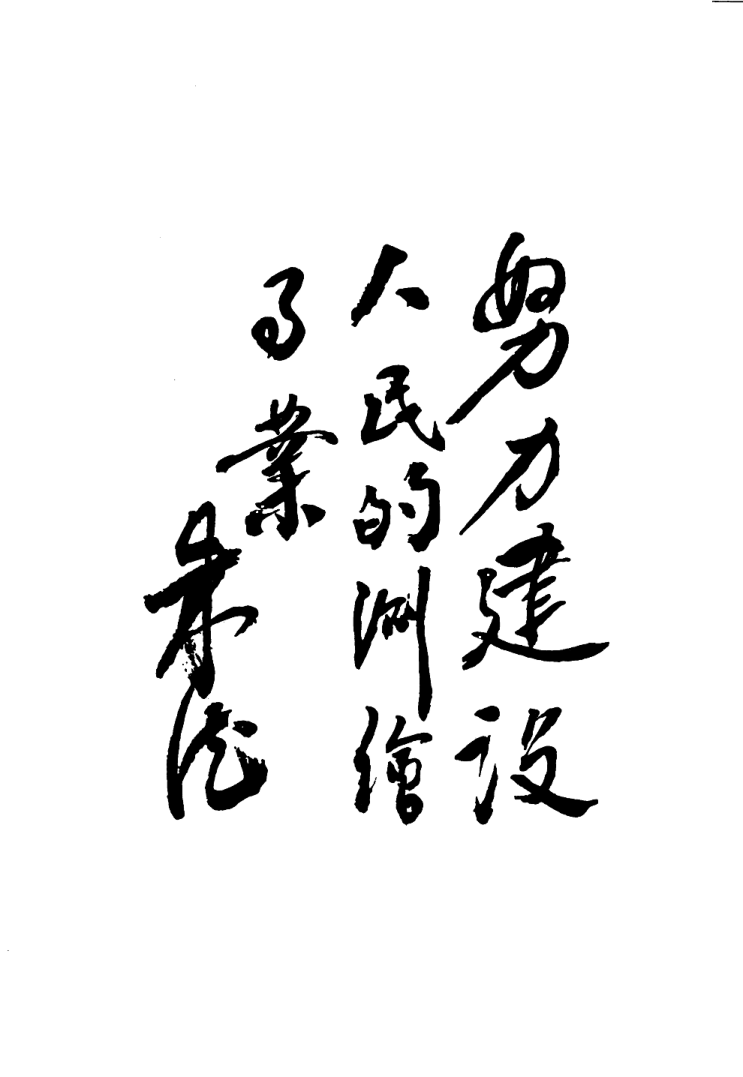 努力建设
人民的測繪
事業
朱德